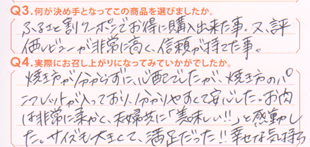 Q3.何が決め手となってこの商品を選びましたか。
ふるさと割クーポンでお得に購入出来た事。又、評
価レビューが非常に高く、信頼が持てた事。
Q4.実際にお召し上がりになってみていかがでしたか。
焼き方が分からずに心配でしたが、焼き方のパ
ンフレットが入っており、分かりやすくて安心した。お肉
は非常に柔かくて、夫婦共に「美味しい!!」と感動し
た。サイズも大きくて、満足だった!!幸せな気持ち